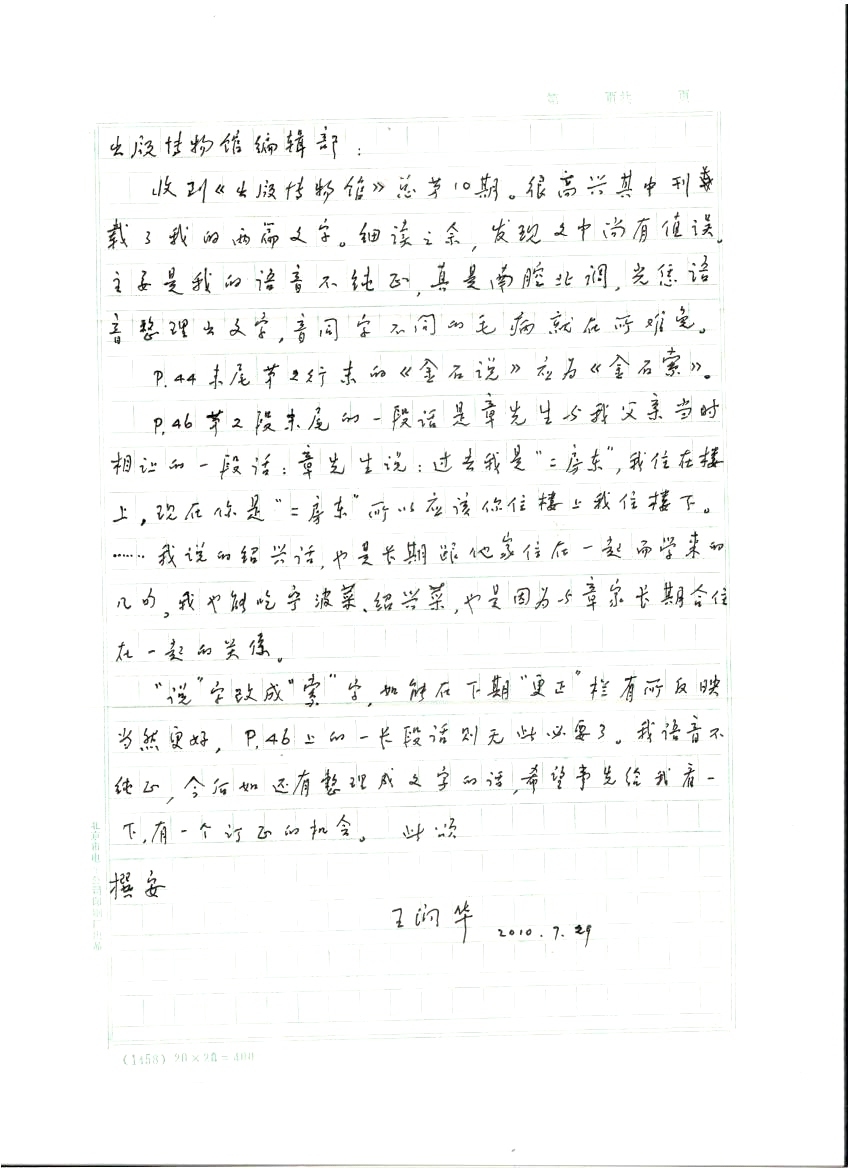 第 页共 页
出版博物馆编辑部：
收到《出版博物馆》总第10期。很高兴其中刊
载了我的两篇文字。细读之余，发现文中尚有值误。
主要是我的语音不纯正，真是南腔北调，光凭语
音整理出文字，音同字不同的毛病就在所难免。
P.44末尾第2行末的《金石说》应为《金石索》。
P.46第2段末尾的一段话是章先生与我父亲当时
相让的一段话：章先生说：过去我是“二房东”，我住在楼
上，现在你是“二房东”所以应该你住楼上我住楼下。
……我说的绍兴话，也是长期跟他家住在一起而学来的
几句，我也能吃宁波菜、绍兴菜，也是因为与章家长期合住
在一起的关係。
“说”字改成“索”字，如能在下期“更正”栏有所反映
当然更好，P.46上的一长段话则无此必要了。我语音不
纯正，今后如还有整理成文字的话，希望事先给我看一
下，有一个订正的机会。 此颂
撰安
王润华 2010.7.29
(1458) 20×20=400